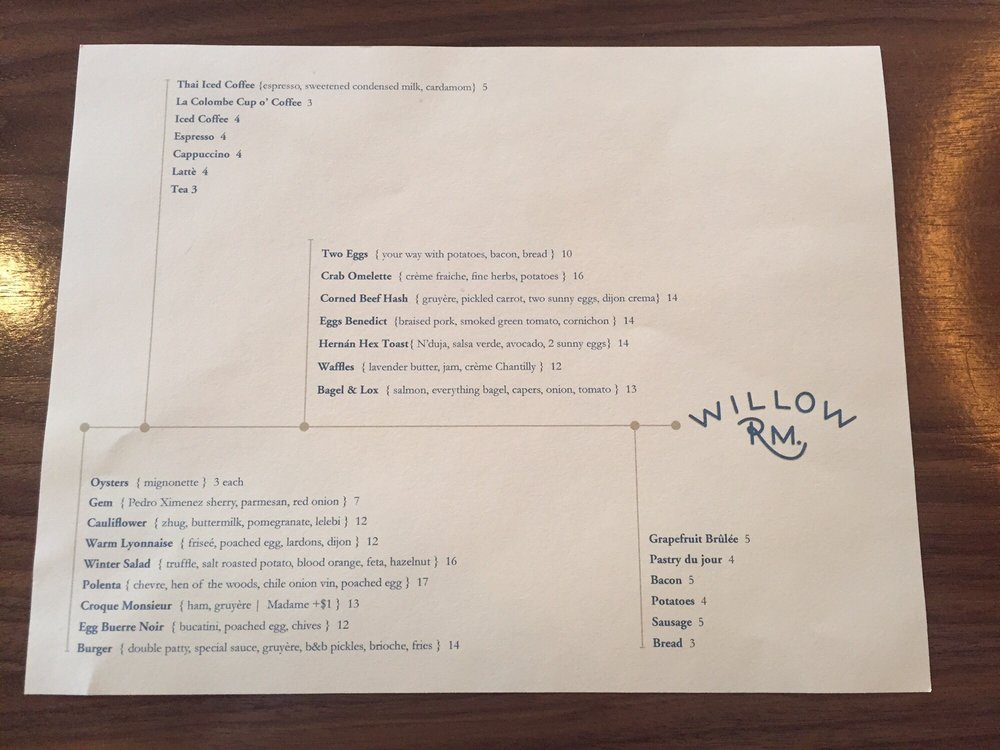 Thai Iced Coffee {espresso, sweetened condensed milk, cardamom} 5
La Colombe Cup o' Coffee 3
Iced Coffee 4
Espresso 4
Cappuccino 4
Lattè 4
Tea 3
Two Eggs { your way with potatoes, bacon, bread } 10
Crab Omelette { crème fraiche, fine herbs, potatoes } 16
Corned Beef Hash { gruyère, pickled carrot, two sunny eggs, dijon crema} 14
Eggs Benedict {braised pork, smoked green tomato, cornichon } 14
Hernán Hex Toast{ N'duja, salsa verde, avocado, 2 sunny eggs} 14
Waffles { lavender butter, jam, crème Chantilly } 12
Bagel & Lox { salmon, everything bagel, capers, onion, tomato } 13
WILLOW
RM.
Oysters { mignonette } 3 each
Gem { Pedro Ximenez sherry, parmesan, red onion } 7
Cauliflower { zhug, buttermilk, pomegranate, lelebi } 12
Warm Lyonnaise { friseé, poached egg, lardons, dijon } 12
Winter Salad { truffle, salt roasted potato, blood orange, feta, hazelnut } 16
Polenta { chevre, hen of the woods, chile onion vin, poached egg } 17
Croque Monsieur { ham, gruyère | Madame +$1 } 13
Egg Buerre Noir { bucatini, poached egg, chives } 12
Burger { double patty, special sauce, gruyère, b&b pickles, brioche, fries } 14
Grapefruit Brûlée 5
Pastry du jour 4
Bacon 5
Potatoes 4
Sausage 5
Bread 3